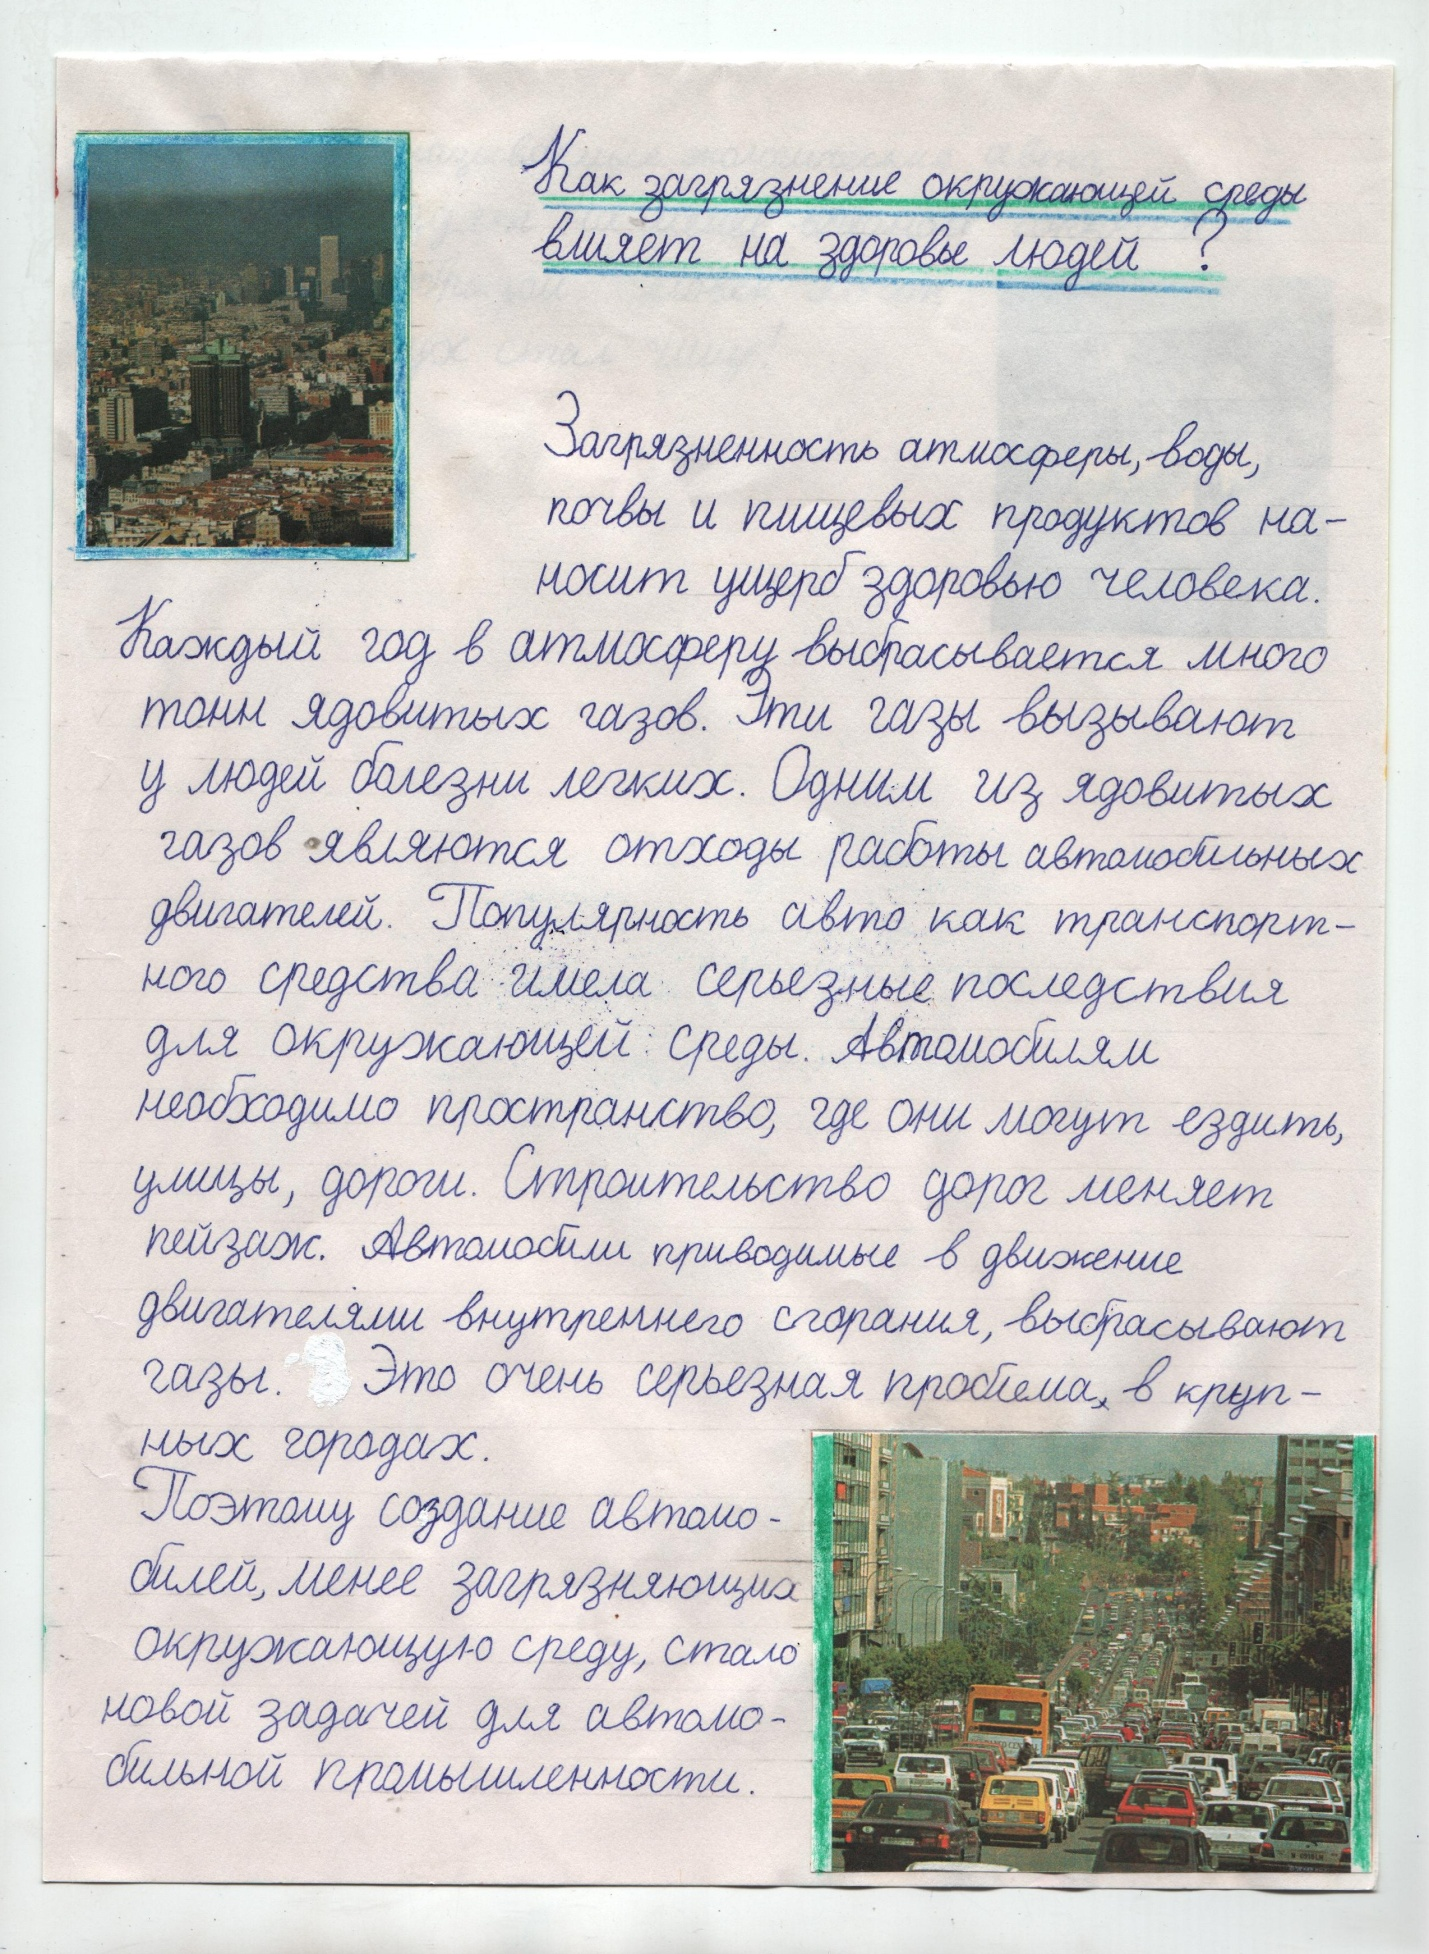 Как загрязнение окружающей среды
влияет на здоровье людей ?
Загрязненность атмосферы, воды,
почвы и пищевых продуктов на-
носит ущерб здоровью человека.
Каждый год в атмосферу выбрасывается много
тонн ядовитых газов. Эти газы вызывают
у людей болезни легких. Одним из ядовитых
газов являются отходы работы автомобильных
двигателей. Популярность авто как транспорт-
ного средства имела серьезные последствия
для окружающей среды. Автомобилям
необходимо пространство, где они могут ездить,
улицы, дороги. Строительство дорог меняет
пейзаж. Автомобили приводимые в движение
двигателями внутреннего сгорания, выбрасывают
газы. Это очень серьезная проблема, в круп-
ных городах.
Поэтому создание автомо-
билей, менее загрязняющих
окружающую среду, стало
новой задачей для автомо-
бильной промышленности.